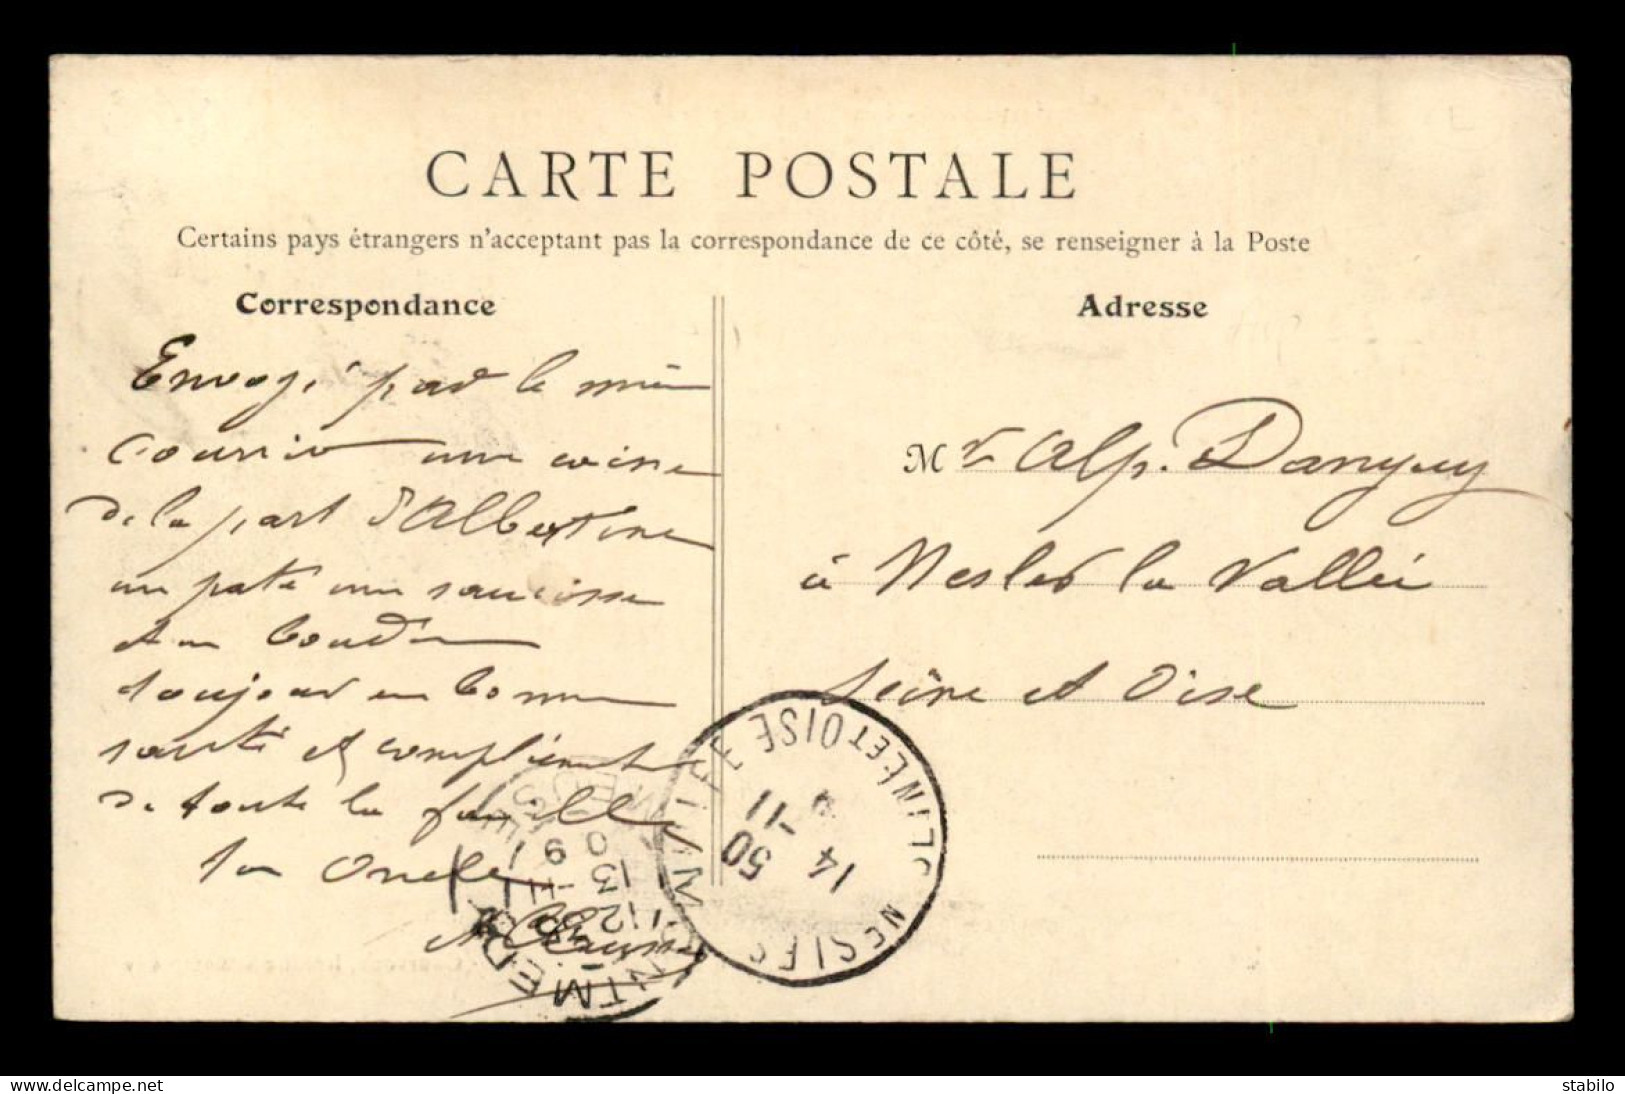 CARTE POSTALE
Certains pays étrangers n'acceptant pas la correspondance de ce côté, se renseigner à la Poste
Correspondance
Envoyé par le même
courrier une caisse
de la part d'Albertine
un paté une saucisse
et un boudin
toujour en bonne
santé et compliments
de toute la famille
ton Oncle
Adresse
Mr Alp. Danguy
à Nesles la Vallée
Seine et Oise
NESLES
SEINE ET OISE
14
-11
50
13
-11
09
delcampe.net
stabilo